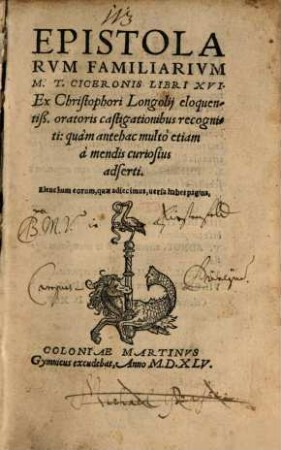 EPISTOLA
RVM FAMILIARIVM
M. T. CICERONIS LIBRI XVI.
Ex Christophori Longolij eloquen-
tiß. oratoris castigationibus recogni-
ti: quàm antehac multò etiam
à mendis curiosius
adserti.
Elenchum eorum, quæ adiecimus, uersa habet pagina.
B. M. V.
Campus
COLONIAE MARTINVS
Gymnicus excudebat, Anno M.D.XLV.